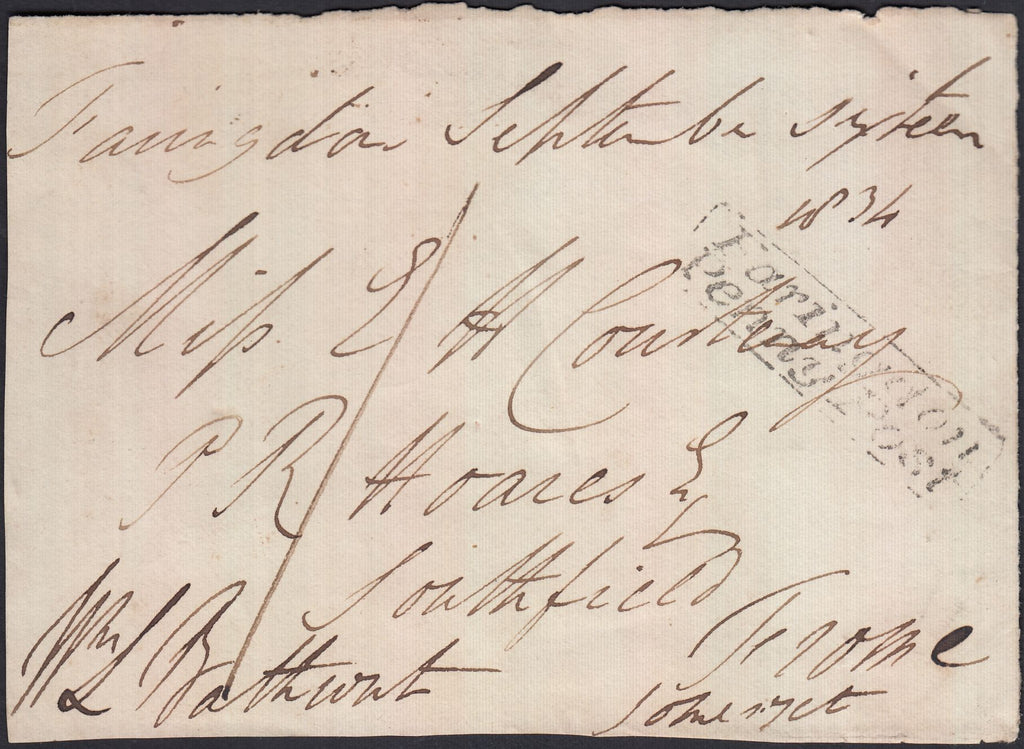 Faringdon September sixteen
1834
Miss E H Courtenay
P R Hoares Esq
Southfield
Frome
Somerset
Wm L Bathurst
Faringdon
Penny Post